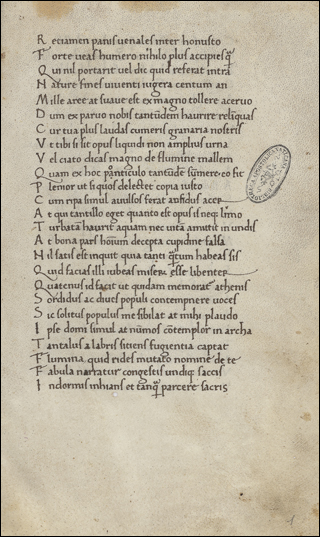 R eciamen panis venales inter honusto
F orte veas humero nihilo plus accipies q̄
Q ui nil portarit vel dic quid referat intra
N ature fines viventi iugera centum an
M ille aree at suave est ex magno tollere acervo
D um ex parvo nobis tantūdem haurire reliquas
C ur tua plus laudas cumeris granaria nostris
V t tibi si sit opus liquidi non amplius urna
V el ciato dicas magno de flumine mallem
Q uam ex hoc fonticulo tantūdē sumere eo fit
P lenior ut siquos delectet copia iusto
C um ripa simul avulsos ferat aufidus acer
A t qui tantillo eget quanto est opus is neq; limo
T urbatā haurit aquam nec vitā amittit in undis
A t bona pars hoīum decepta cupidine falsa
N il satis est inquit quia tanti quātum habeas sis
Q uid facias illi iubeas miserū esse libenter
Q uatenus id facit ut quidam memorat athenis
S ordidus ac dives populi contempnere voces
S ic solitus populus me sibilat at mihi plaudo
I pse domi simul at nūmos cōtemplor in archa
T antalus a labris sitiens fugientia captat
F lumina. quid rides mutato nomine de te
F abula narratur congestis undiq; saccis
I ndormis inhians et tanq̄ parcere sacris
1